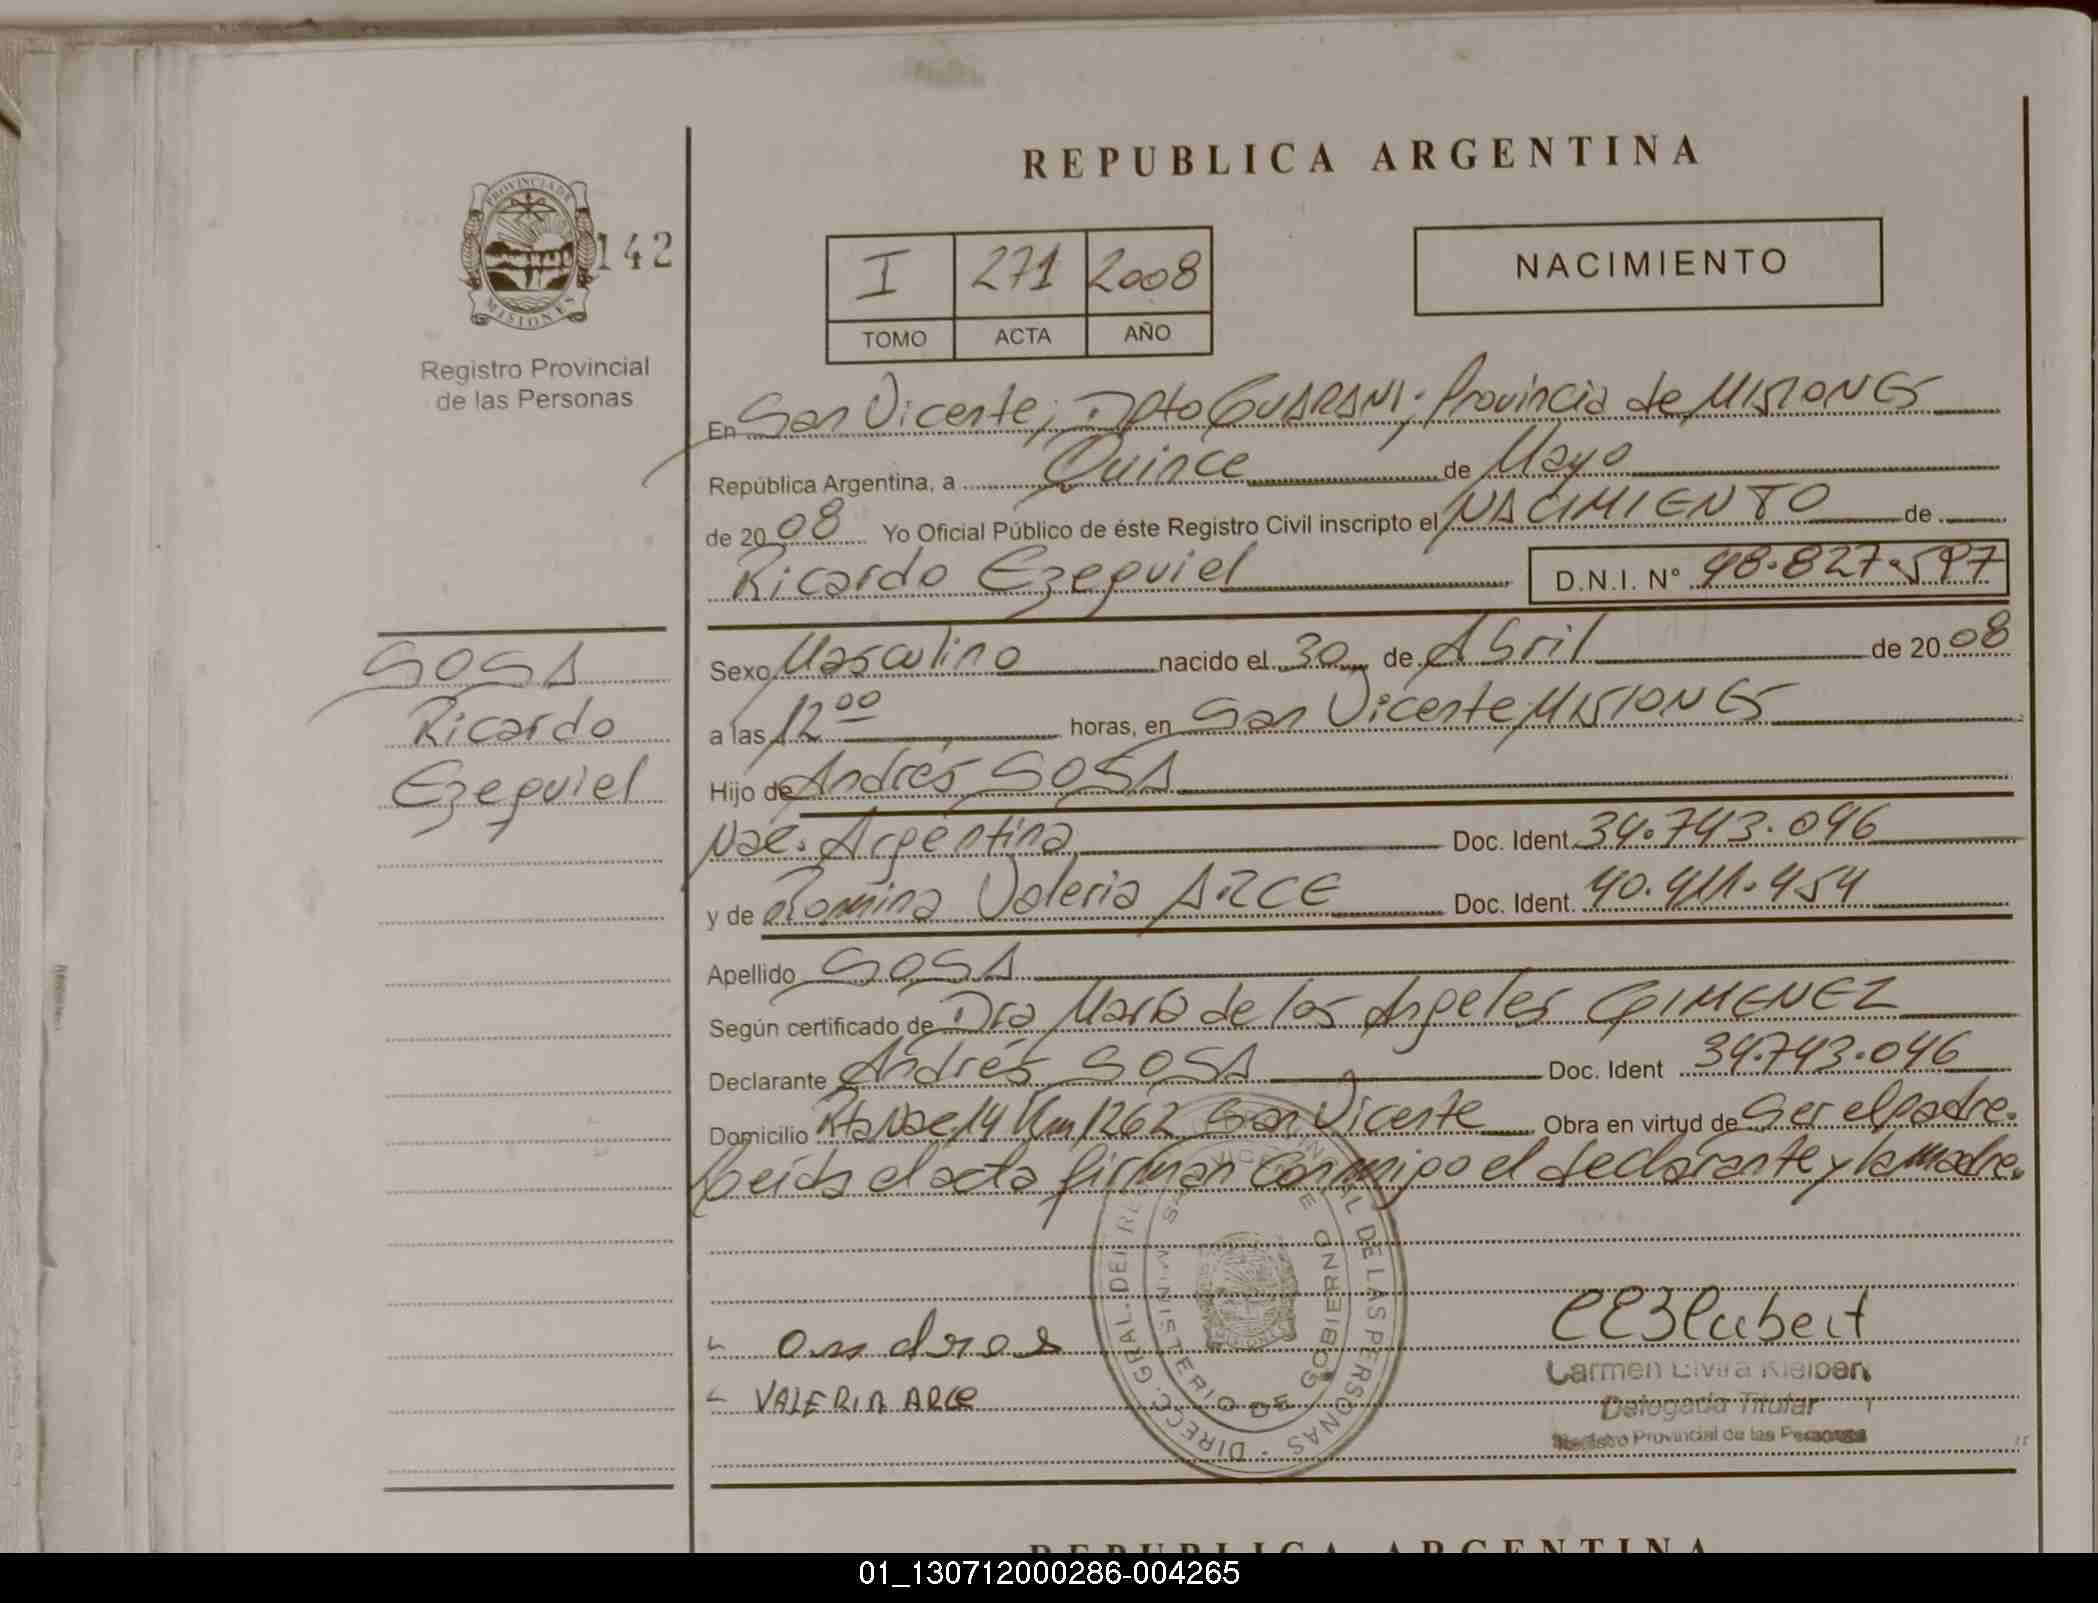 REPUBLICA ARGENTINA
PROVINCIA DE
MISIONES
142
Registro Provincial
de las Personas
I 271 2008
TOMO ACTA AÑO
NACIMIENTO
En San Vicente; Dpto GUARANI; Provincia de MISIONES
República Argentina, a Quince de Mayo
de 2008 Yo Oficial Público de éste Registro Civil inscripto el NACIMIENTO de
Ricardo Ezequiel D.N.I. Nº 48.827.597
SOSA
Ricardo
Ezequiel
Sexo Masculino nacido el 30 de Abril de 2008
a las 12 00 horas, en San Vicente MISIONES
Hijo de Andrés SOSA
Nac. Argentina Doc. Ident. 34.743.046
y de Romina Valeria ARCE Doc. Ident. 40.411.454
Apellido SOSA
Según certificado de Dra María de los Angeles GIMENEZ
Declarante Andrés SOSA Doc. Ident 34.743.046
Domicilio Rta Nac 14 Km 1262 San Vicente Obra en virtud de Ser el padre.
Leída el acta firman conmigo el declarante y la madre.
DIRECC. GRAL. DEL DE LAS PERSONAS
MINISTERIO DE GOBIERNO
andres
VALERIA ARCE
Carmen Elvira
Delegada Titular
Registro Provincial de las Personas
REPUBLICA ARGENTINA
01_130712000286-004265